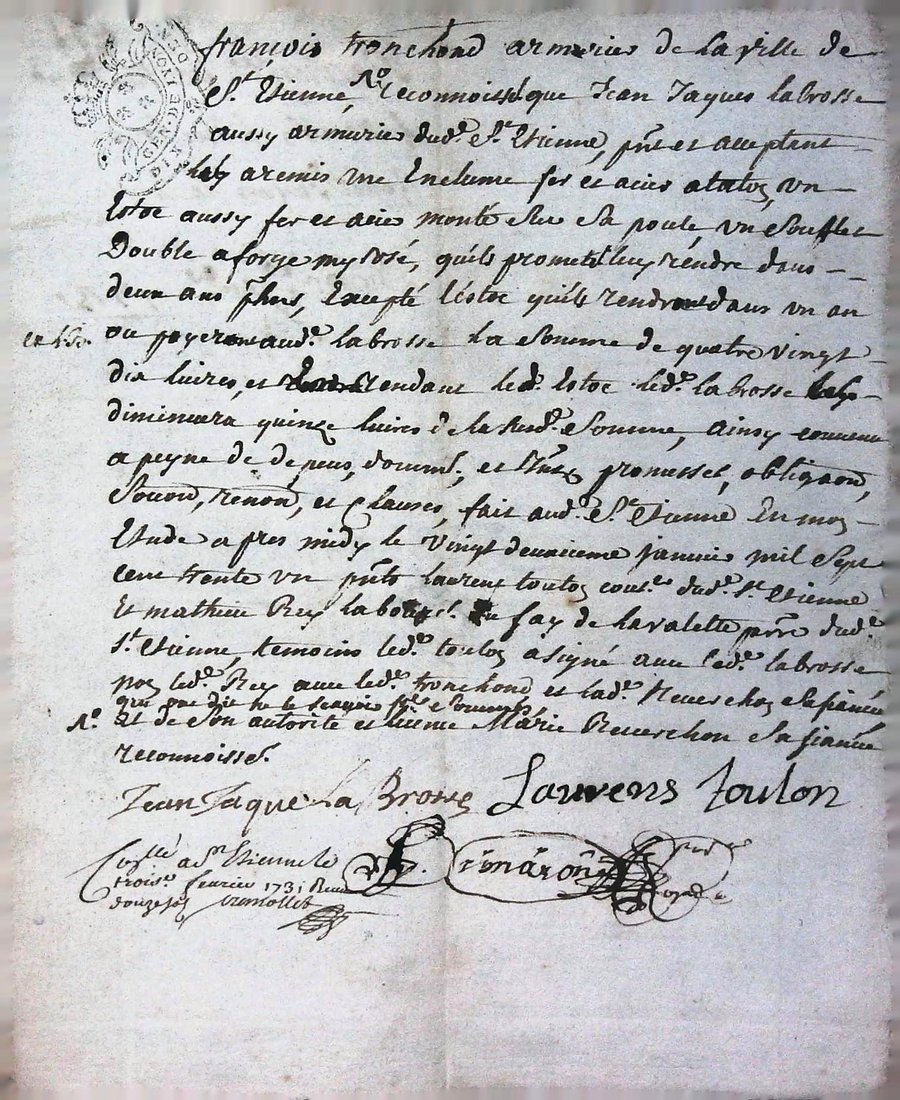 GEN DE LYON
DEN
DIX
françois tronchond armurier de la ville de
St. Etienne, No. reconnoissé que Jean Jaques labrosse
aussy armurier dud. St. Etienne, pnt et acceptant
a remis une Enclume fer et acier un
Estoc aussy fer et acier monté Sur Sa poule, un Soufflet
Double a forge my Vsé, quils promett luy rendre dans
deux ans prhns, Excepté lestoc quils rendront dans un an
ou payeront aud. labrosse la Somme de quatre Vingt
dix livres, et rendant led. Estoc led. labrosse
diminuera quinze livres de la Susd. Somme, ainsy convenu
a peyne de depens, domms. et promesses, obligaon,
renon, et Clauses, fait aud. St. Etienne En mon
Etude apres midy le Vingt deuxieme janvier mil Sept
Cent trente un pnts laurent toulon cout. dud. St. Etienne
Et mathieu Rey labour. du fay de lavalette prre dud.
St. Etienne, temoins led. toulon a signé avec led. labrosse
non led. Rey avec led. tronchond et lad. Reverchon Sa fiancée
qui ont dit ne le Scavoir Sommés
No. Et de Son autorité et licence Marie Reverchon Sa fiancée
reconnoissés.
Jean Jaque La Brosse Laurens Toulon
Con.llé a St. Etienne le
trois. fevrier 1731 Reçu
douze sols